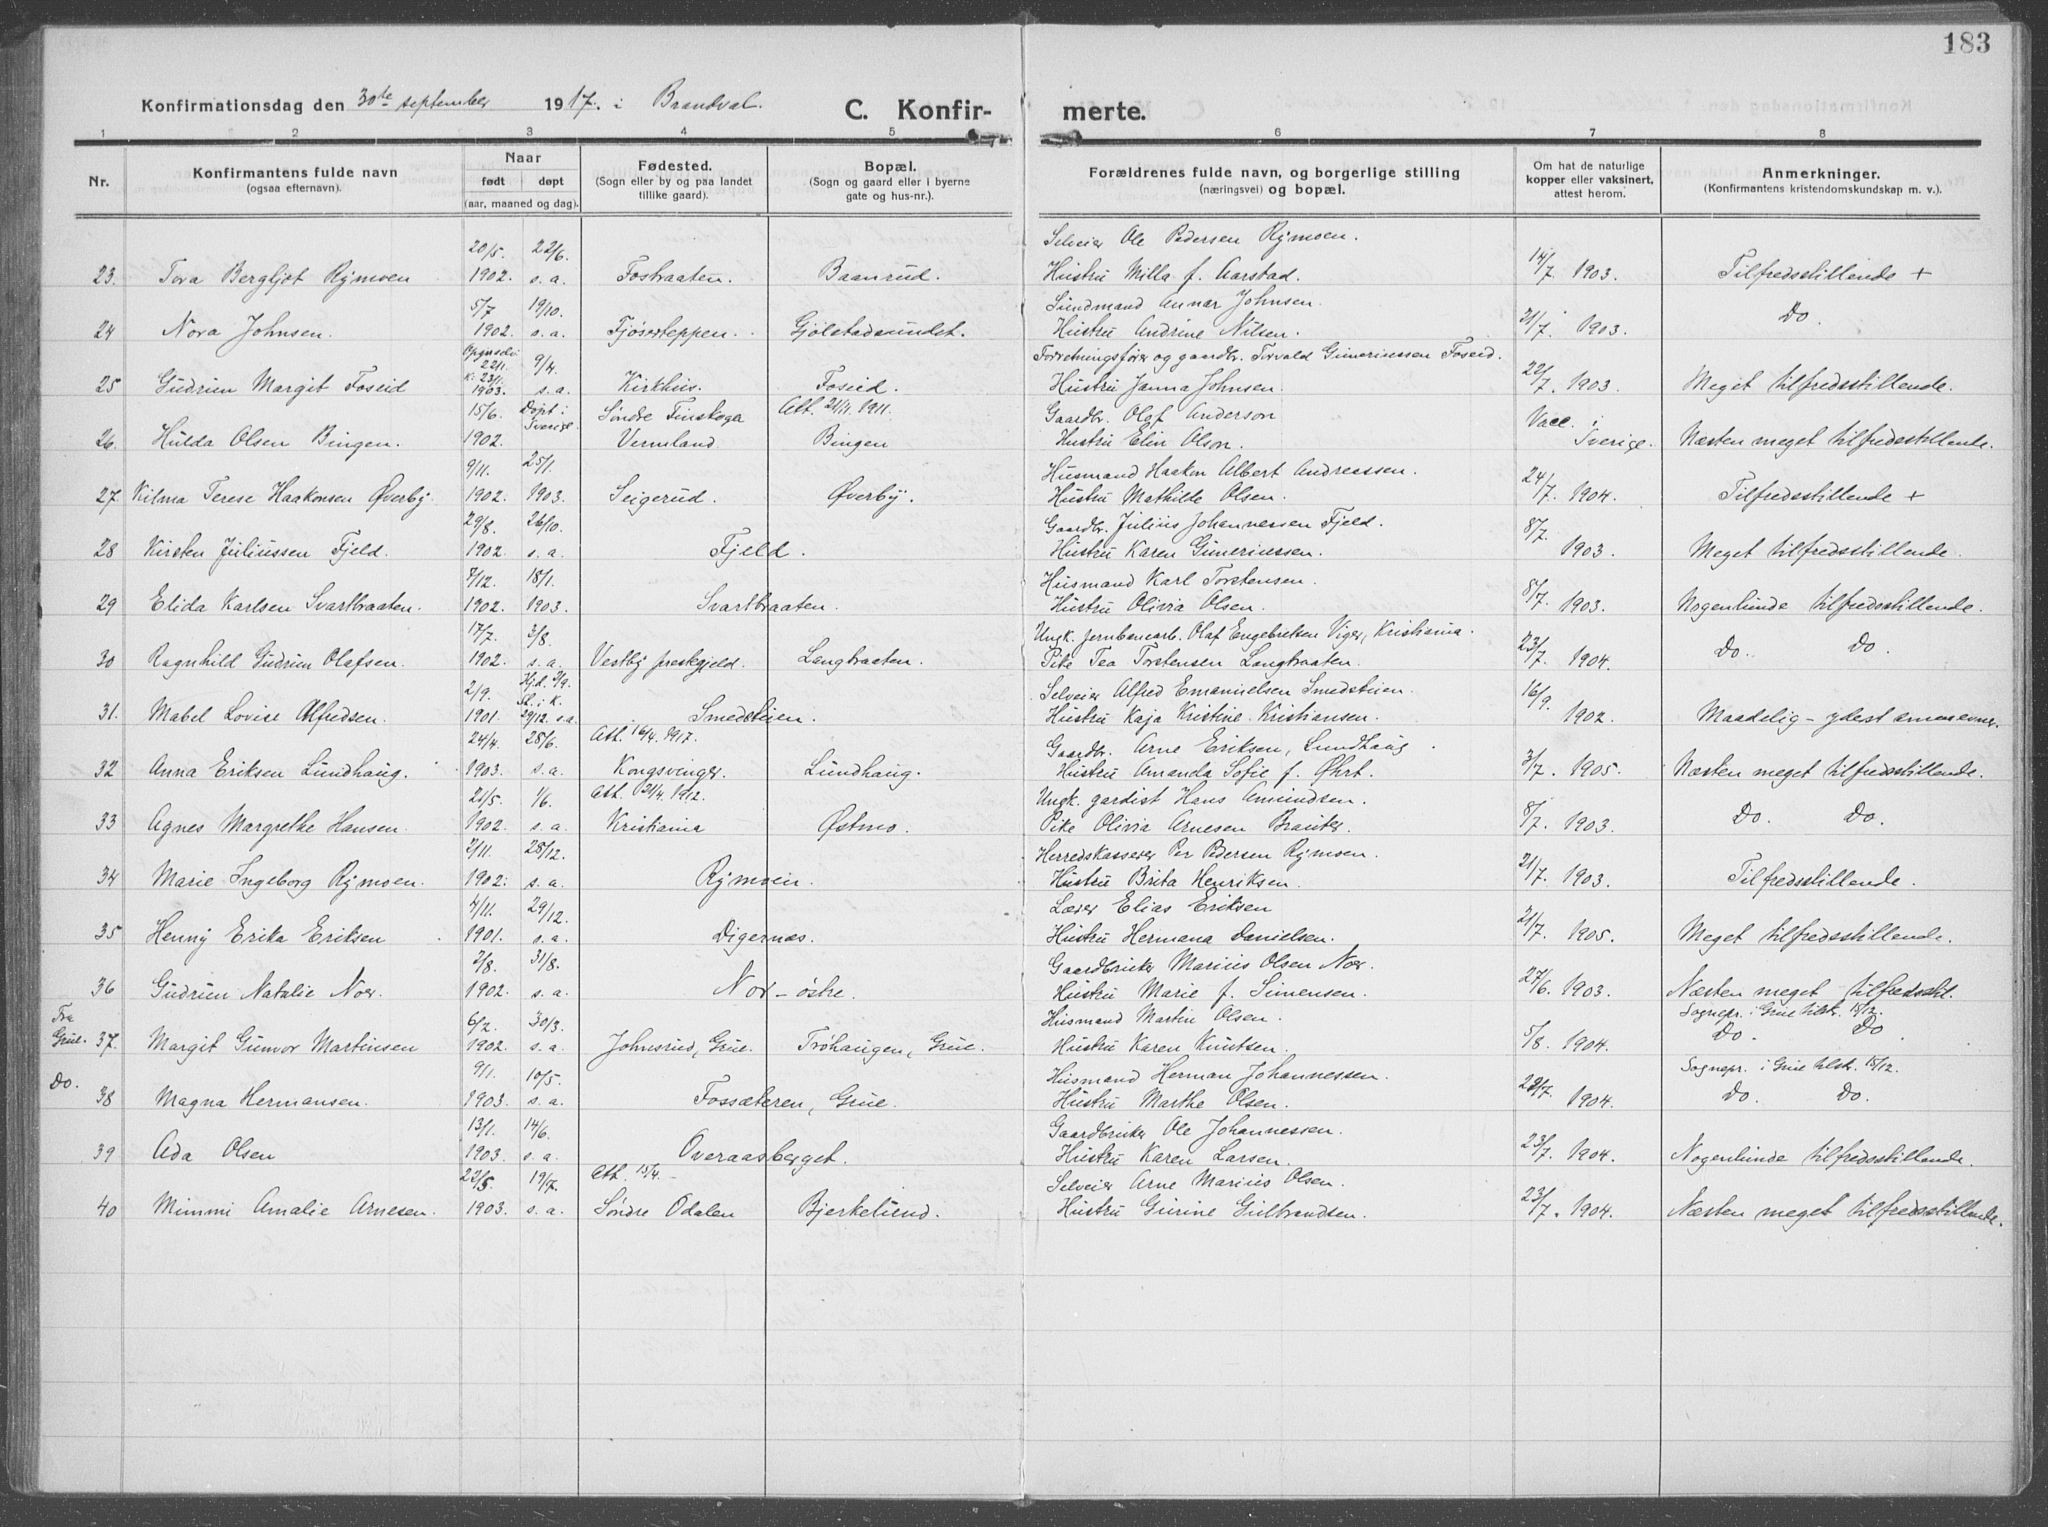 183
Konfirmationsdag den 30te september 1917. i Brandval. C. Konfir- merte.
1 2 3 4 5 6 7 8
Nr. Konfirmantens fulde navn (ogsaa efternavn). Naar født døpt (aar, maaned og dag). Fødested. (Sogn eller by og paa landet tillike gaard). Bopæl. (Sogn og gaard eller i byerne gate og hus-nr.). Forældrenes fulde navn, og borgerlige stilling (næringsvei) og bopæl. Om hat de naturlige kopper eller vaksinert, attest herom. Anmerkninger. (Konfirmantens kristendomskundskap m. v.).
20/5. 22/6. Selveier Ole Pedersen Rymoen.
23. Tora Bergljot Rymoen 1902. s. a. Fosbraaten. Baanrud. Hustru Milla f. Aarstad. 14/7. 1903. Tilfredsstillende +
5/7 19/10. Sundmand Annar Johnsen.
24 Nora Johnsen. 1902. s. a. Fjøserteppen. Gjølstadsundet. Hustru Andrine Nilsen. 21/7. 1903. Do.
22/1. 9/4. Forretningsfører og gaardbr. Torvald Gunerius­sen Foseid.
25 Gudrun Margit Foseid K. 23/1. 1903. s. a. Kirkhus. Foseid. Hustru Janna Johnsen. 22/7. 1903. Meget tilfredsstillende.
15/6. Døpt i Sverige. Søndre Finskoga Att. 21/4. 1911. Gaardbr. Olof Anderson Vacc. i
26. Hulda Olsen Bingen. 1902. Vermland Bingen Hustru Elin Olson. Sverige. Næsten meget tilfredsstillende.
9/11. 25/1. Husmand Haakon Albert Andreassen.
27. Kitma Terese Haakonsen Øverby 1902. 1903. Seigerud. Øverby. Hustru Mathilde Olsen. 24/7. 1904. Tilfredsstillende +
29/8. 26/10. Gaardbr. Julius Johannessen Fjeld.
28 Kirsten Juliussen Fjeld. 1902. s. a. Fjeld. Hustru Karen Gunerius­sen. 8/7. 1903. Meget tilfredsstillende.
7/12. 18/1. Husmand Karl Torstensen.
29 Elida Karlsen Svartbraaten. 1902. 1903. Svartbraaten. Hustru Olivia Olsen. 8/7. 1903. Nogenlunde tilfredsstillende.
17/7. 3/8. Ungk. jernbanearb. Olaf Engebretsen Viger, Kristiania.
30 Ragnhild Gudrun Olafsen. 1902. s. a. Vestby prestegjeld. Langbraaten. Pike Tea Torstensen Langbraaten. 23/7. 1904. Do. Do.
2/9. Hjd. 9/9. St. i K. Selveier Alfred Emanuelsen Smedstuen.
31. Mabel Lovise Alfredsen. 1901. 29/12. s.a. Smedstuen. Hustru Kaja Kristine Kristiansen. 16/9. 1902. Maadelig - ydest
24/4. 28/6. Att. 16/4. 1917. Gaardbr. Arne Eriksen, Lundhaug.
32 Anna Eriksen Lundhaug. 1903. s. a. Kongsvinger. Lundhaug. Hustru Amanda Sofie f. Øhrt. 3/7. 1905. Næsten meget tilfredsstillende.
21/5. 1/6. Att. 21/4. 1912. Ungk. gardist Hans Amundsen.
33 Agnes Margrethe Hansen. 1902. s. a. Kristiania Østmo. Pike Olivia Arnesen Brauter. 8/7. 1903. Do. Do.
2/11. 28/12. Herredskasserer Per Pedersen Rymoen.
34 Marie Ingeborg Rymoen. 1902. s. a. Rymoen. Hustru Brita Henriksen. 21/7. 1903. Tilfredsstillende.
4/11. 29/12. Lærer Elias Eriksen
35 Henny Erika Eriksen 1901. s. a. Digernæs. Hustru Hermana Danielsen. 21/7. 1905. Meget tilfredsstillende.
2/8. 31/8. Gaardbruker Marius Olsen Nor.
36 Gudrun Natalie Nor. 1902. s. a. Nor - østre. Hustru Marie f. Simensen. 27/6. 1903. Næsten meget tilfredsst.
Fra 6/2. 30/3. Husmand Martin Olsen. Sognepr. i Grue tilst. 15/12.
Grue. 37. Margit Gunvor Martinsen 1902. s. a. Johnsrud, Grue. Trøhaugen, Grue. Hustru Karen Knutsen. 5/8. 1904. Do. Do
Do. 9/1. 10/5. Husmand Herman Johannessen. Sognepr. i Grue tilst. 15/12.
38 Magna Hermansen. 1903. s. a. Fossæteren, Grue. Hustru Marthe Olsen. 22/7. 1904. Do. Do.
13/1. 14/6. Gaardbruker Ole Johannessen.
39 Ada Olsen 1903. s. a. Overaasberget. Hustru Karen Larsen. 23/7. 1904. Nogenlunde tilfredsstillende.
22/5. 19/7. Att. 15/4. - Selveier Arne Marius Olsen.
40 Mimmi Amalie Arnesen. 1903. s. a. Søndre Odalen Bjerkelund. Hustru Gurine Gulbrandsen. 23/7. 1904. Næsten meget tilfredsstillende.